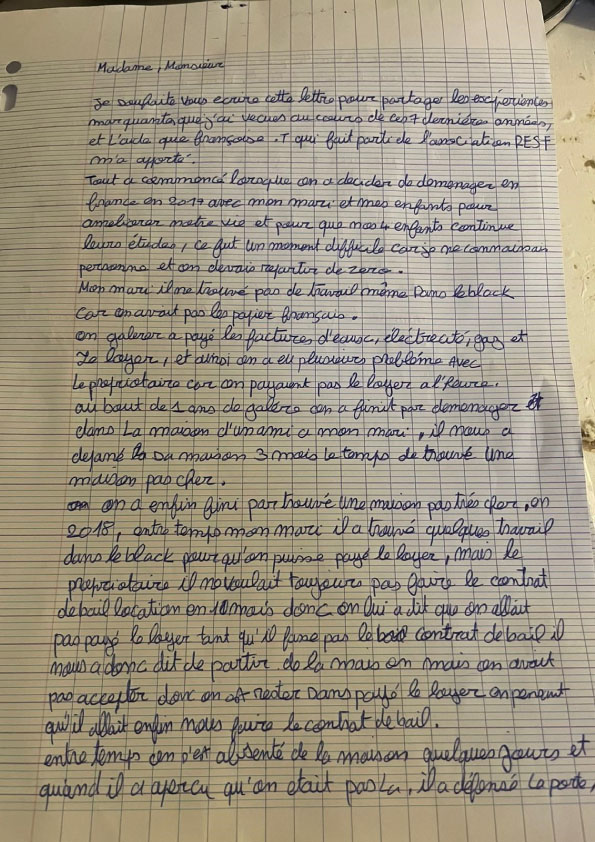 Madame, Monsieur
Je souhaite vous ecrire cette lettre pour partager les expériences
marquante que j'ai vecues au cours de ces 7 dernières années,
et L'aide que françoise .T qui fait parti de l'association RESF
m'a apporté.
Tout a commencé lorsque on a decider de demenager en
france en 2017 avec mon mari et mes enfants pour
améliorer notre vie et pour que mes 4 enfants continue
leurs études, ce fut un moment difficile car je ne connaissais
personne et on devais repartir de zero.
Mon mari il ne trouvé pas de travail même Dans le black
car on avait pas les papier français.
on galerer a payé les factures d'eaux, électrecité, gaz et
Le loyer, et ainsi on a eu plusieurs problème Avec
Le propriotaire car on payaient pas le loyer a l'heure.
au bout de 1 ans de galere on a finit par demenager
dans La maison d'un ami a mon mari, il nous a
Sa maison 3 mois le temps de trouvé Une
maison pas cher.
on a enfin fini par trouvé une maison pas trés cher, en
2018, entre temps mon mari il a trouvé quelques travail
dans le black pour qu'on puisse payé le loyer, mais le
propriotaire il ne voulait toujours pas faire le contrat
de bail location en 10 mois donc on lui a dit que on allait
pas payé le loyer tant qu'il fasse pas le contrat de bail il
nous a donc dit de partir de la maison mais on avait
pas accepter donc on est rester sans payé le loyer en pensent
qu'il allait enfin nous faire le contrat de bail.
entre temps on s'est absenté de la maison quelques jours et
quand il a aperçu qu'on etait pas La, il a défonsé La porte,